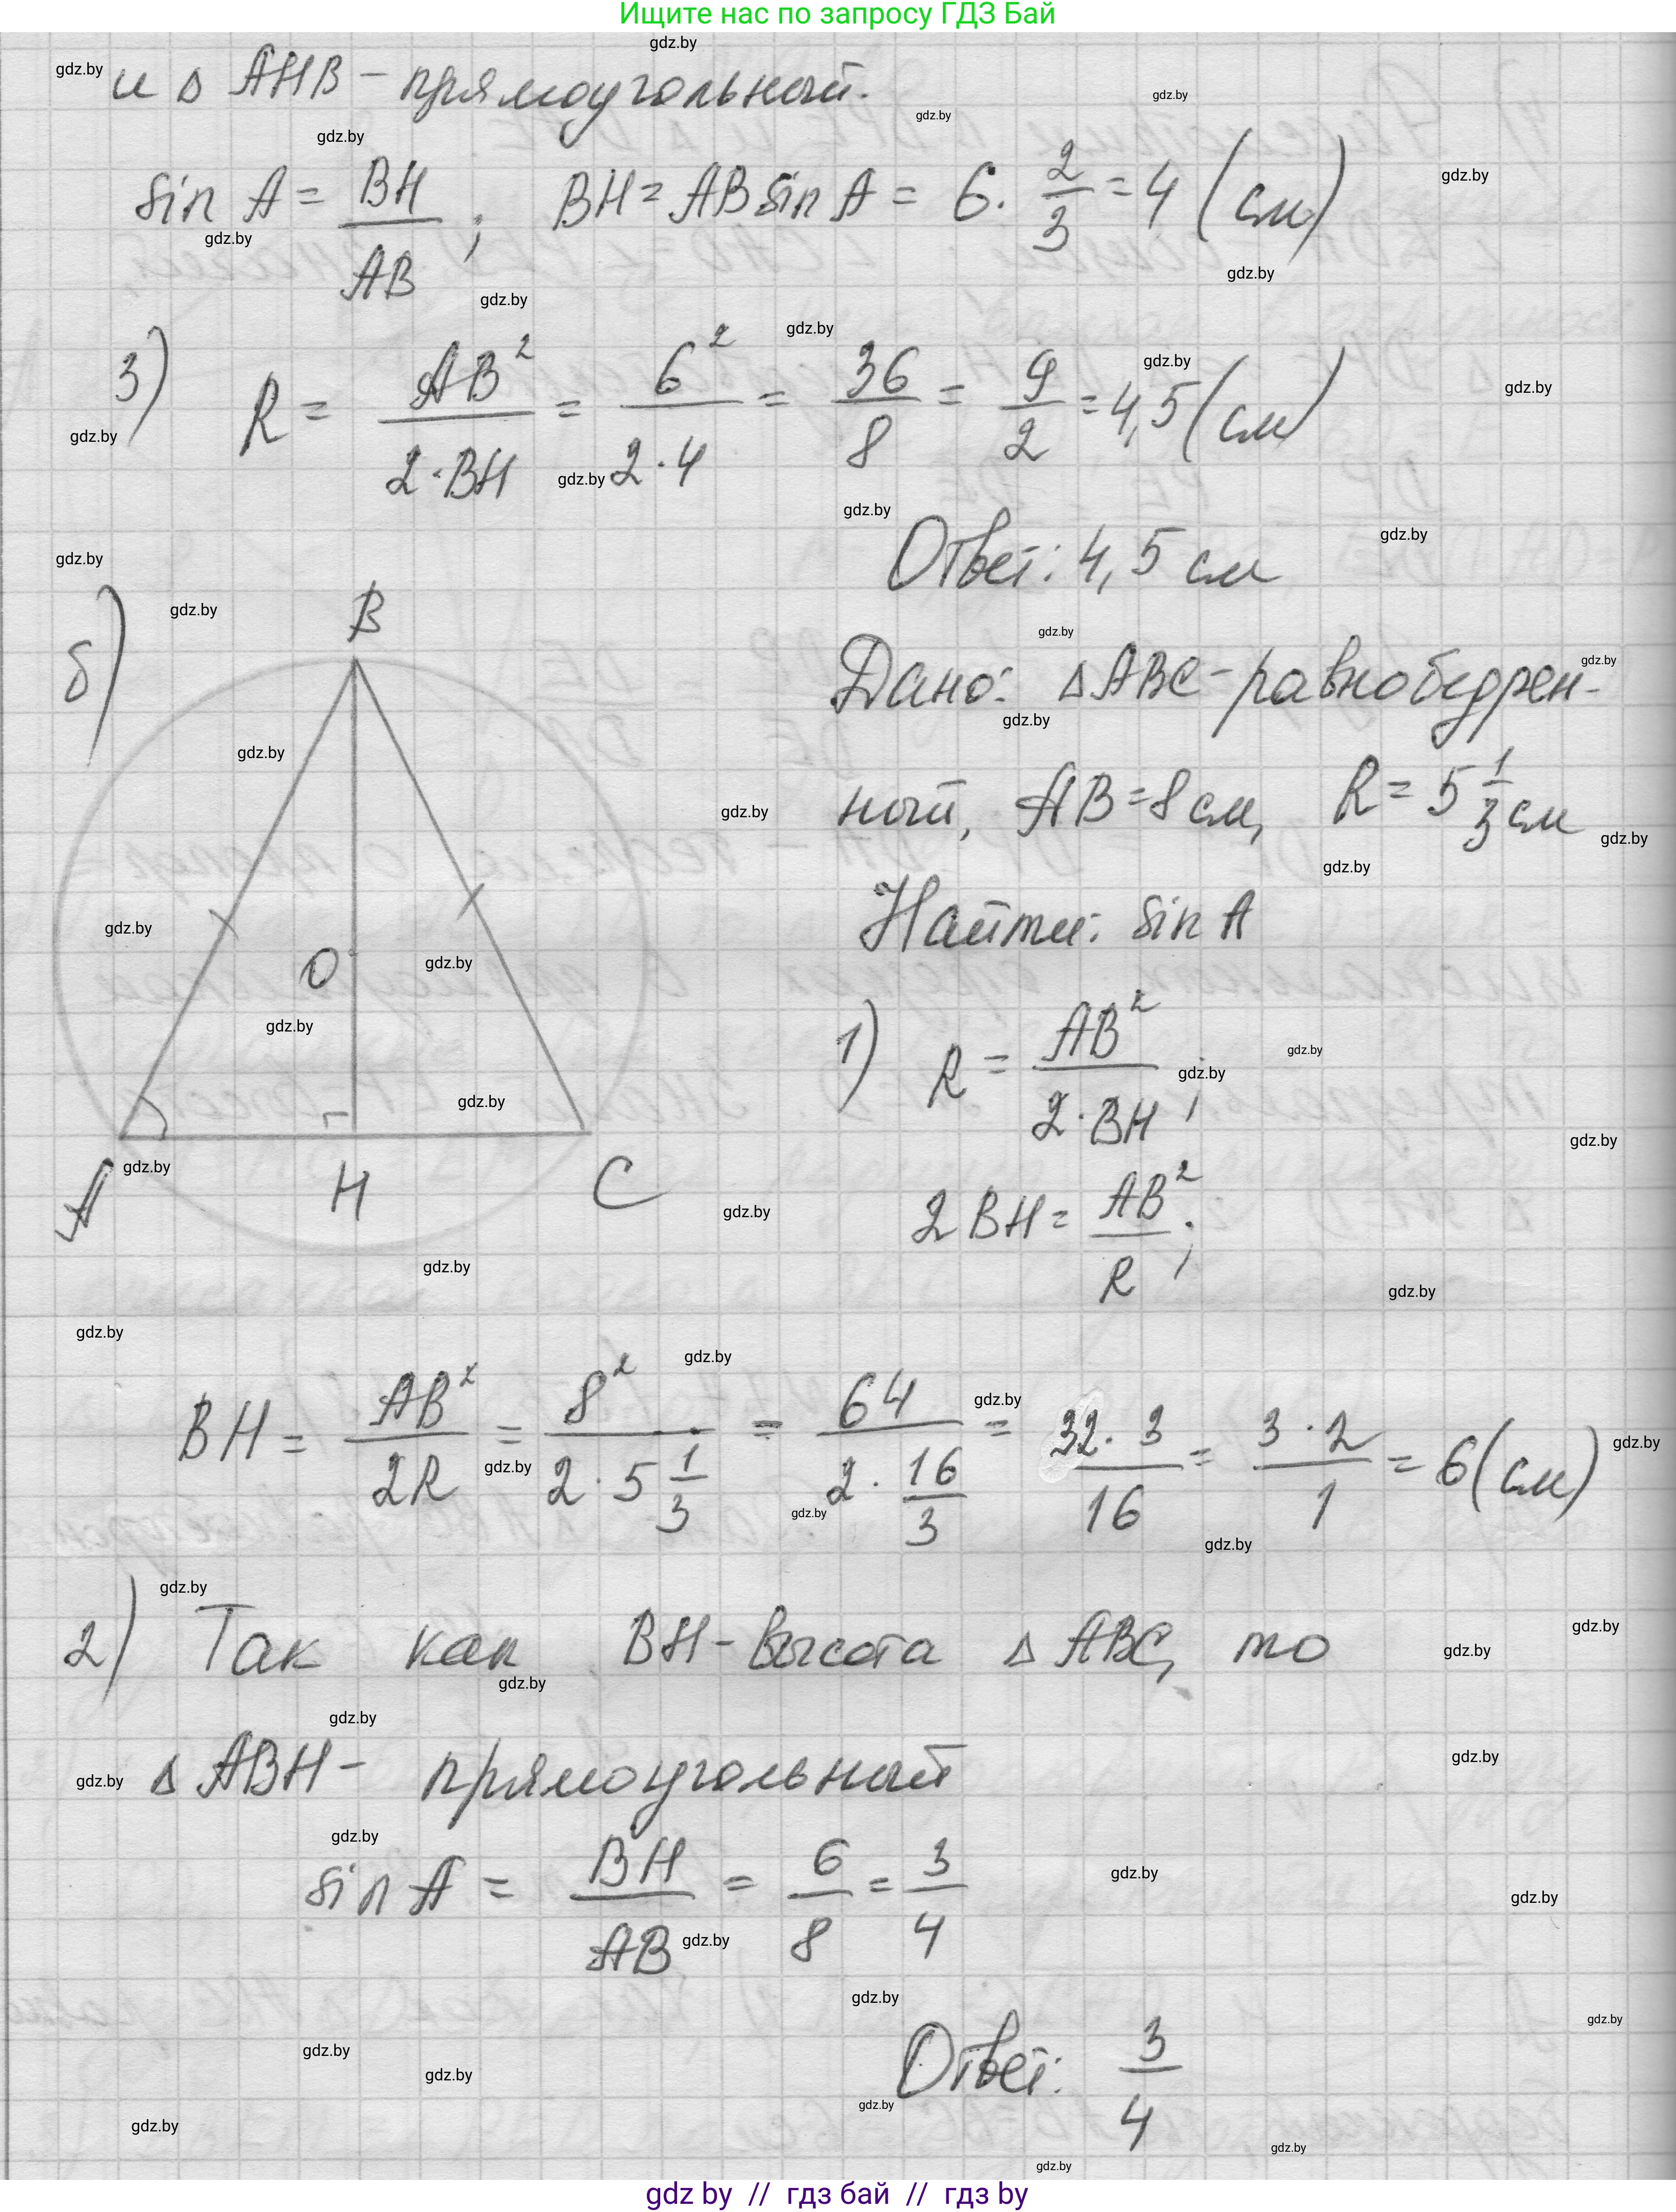 Ищите нас по запросу ГДЗ Бай
и △ AHB - прямоугольный.
sin A = BH/AB ; BH = AB sin A = 6 · 2/3 = 4 (см)
3) R = AB²/(2·BH) = 6²/(2·4) = 36/8 = 9/2 = 4,5 (см)
Ответ: 4,5 см
б)
B
O
A
H
C
Дано: △ABC - равнобедрен-
ный, AB = 8 см, R = 5 1/3 см
Найти: sin A
1) R = AB²/(2·BH) ;
2BH = AB²/R ;
BH = AB²/2R = 8²/(2 · 5 1/3) = 64/(2 · 16/3) = 32·3/16 = 3·2/1 = 6 (см)
2) Так как BH - высота △ ABC, то
△ ABH - прямоугольный
sin A = BH/AB = 6/8 = 3/4
Ответ: 3/4
gdz by // гдз бай // гдз by